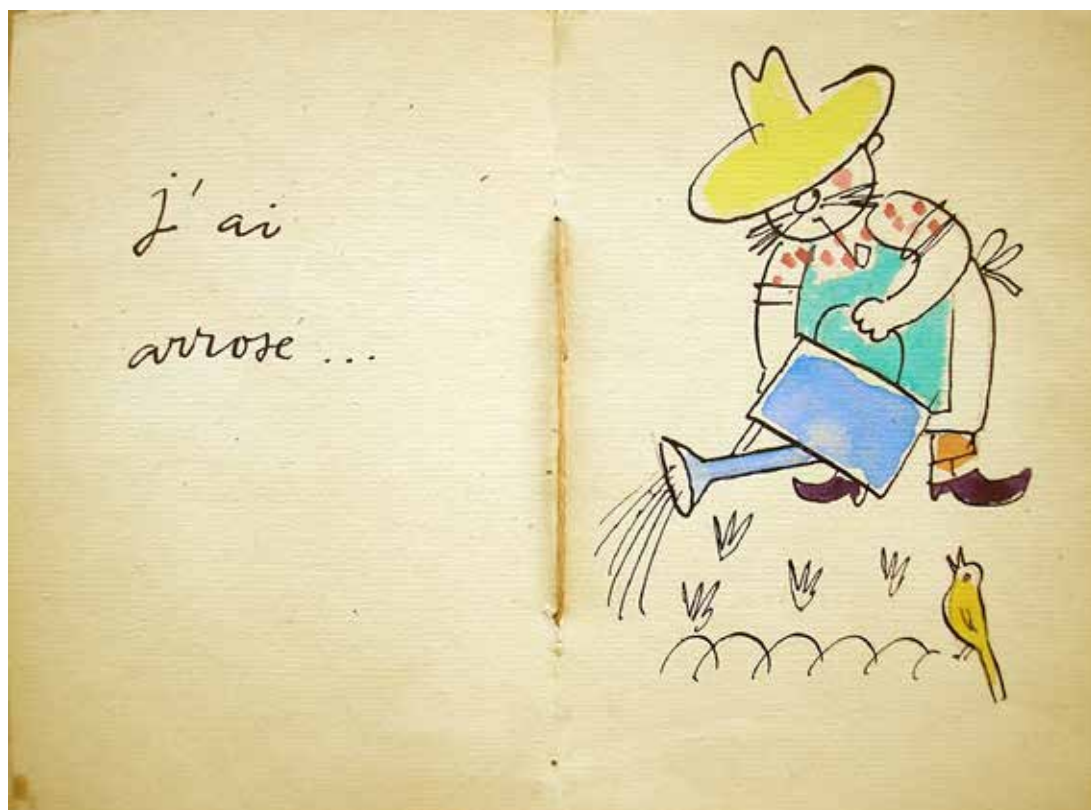 j'ai
arrosé ...